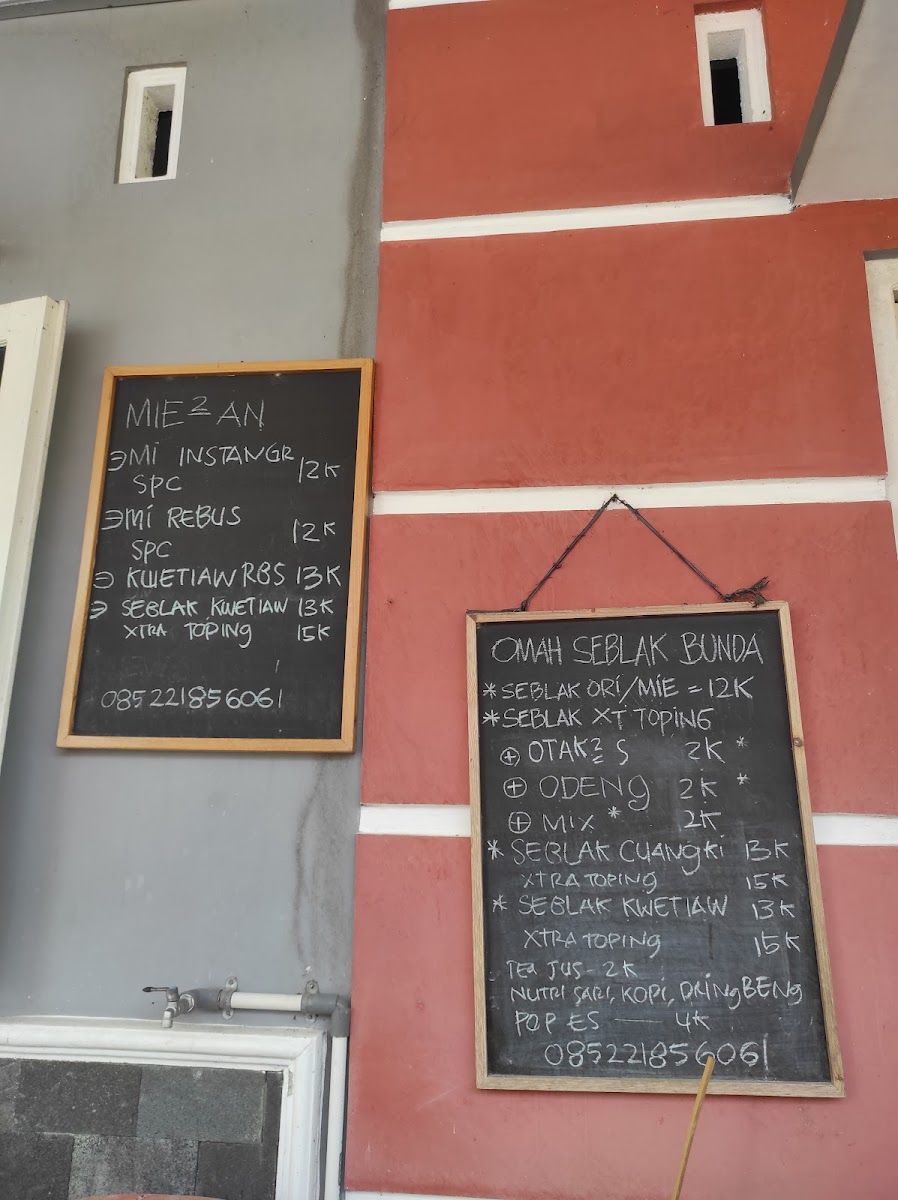 MIE2 AN
MI INSTANGR 12K
SPC
MI REBUS 12K
SPC
KWETIAW RBS 13K
SEBLAK KWETIAW 13K
XTRA TOPING 15K
085221856061
OMAH SEBLAK BUNDA
*SEBLAK ORI/MIE = 12K
*SEBLAK XT TOPING
⊕ OTAK2 S 2K *
⊕ ODENG 2K *
⊕ MIX * 2K
* SEBLAK CUANGKI 13K
XTRA TOPING 15K
* SEBLAK KWETIAW 13K
XTRA TOPING 15K
TEA JUS - 2K
NUTRI SARI, KOPI, DRINGBENG
POP ES — 4K
085221856061